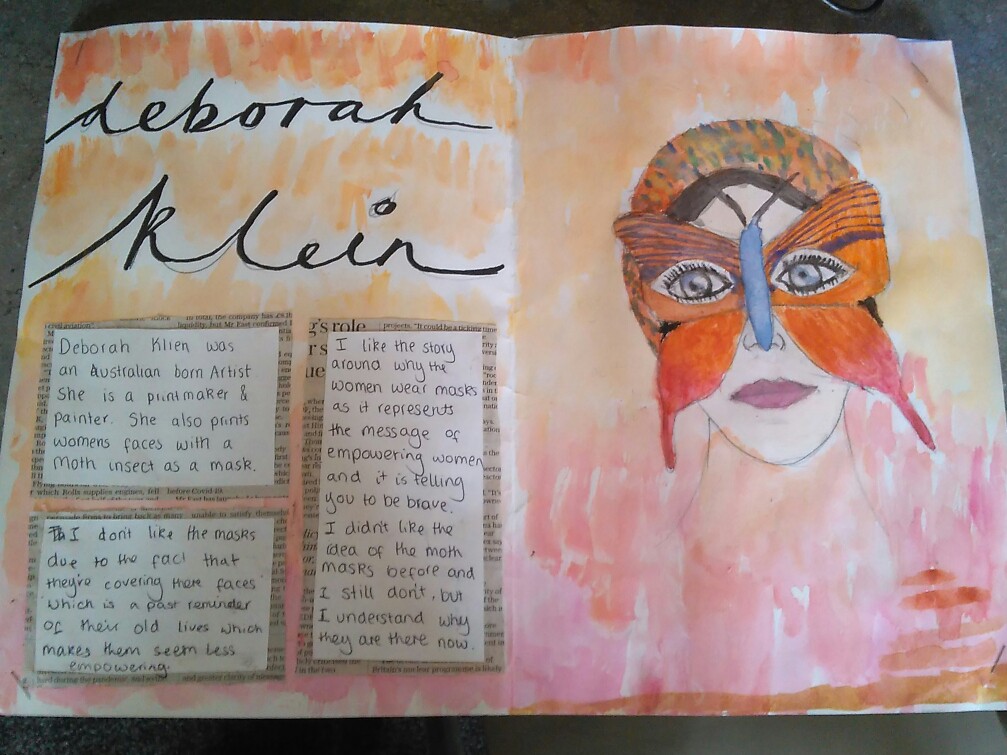 deborah
klein
Deborah Klien was
an Australian born Artist
She is a printmaker &
painter. She also prints
womens faces with a
moth insect as a mask.
I dont like the masks
due to the fact that
they're covering there faces
which is a past reminder
of their old lives which
makes them seem less
empowering.
I like the story
around why the
women wear masks
as it represents
the message of
empowering women
and it is telling
you to be brave.
I didn't like the
idea of the moth
masks before and
I still don't, but
I understand why
they are there now.
g's role
projects. "It could be a ticking time
which Rolls supplies engines, fell
before Covid-19.